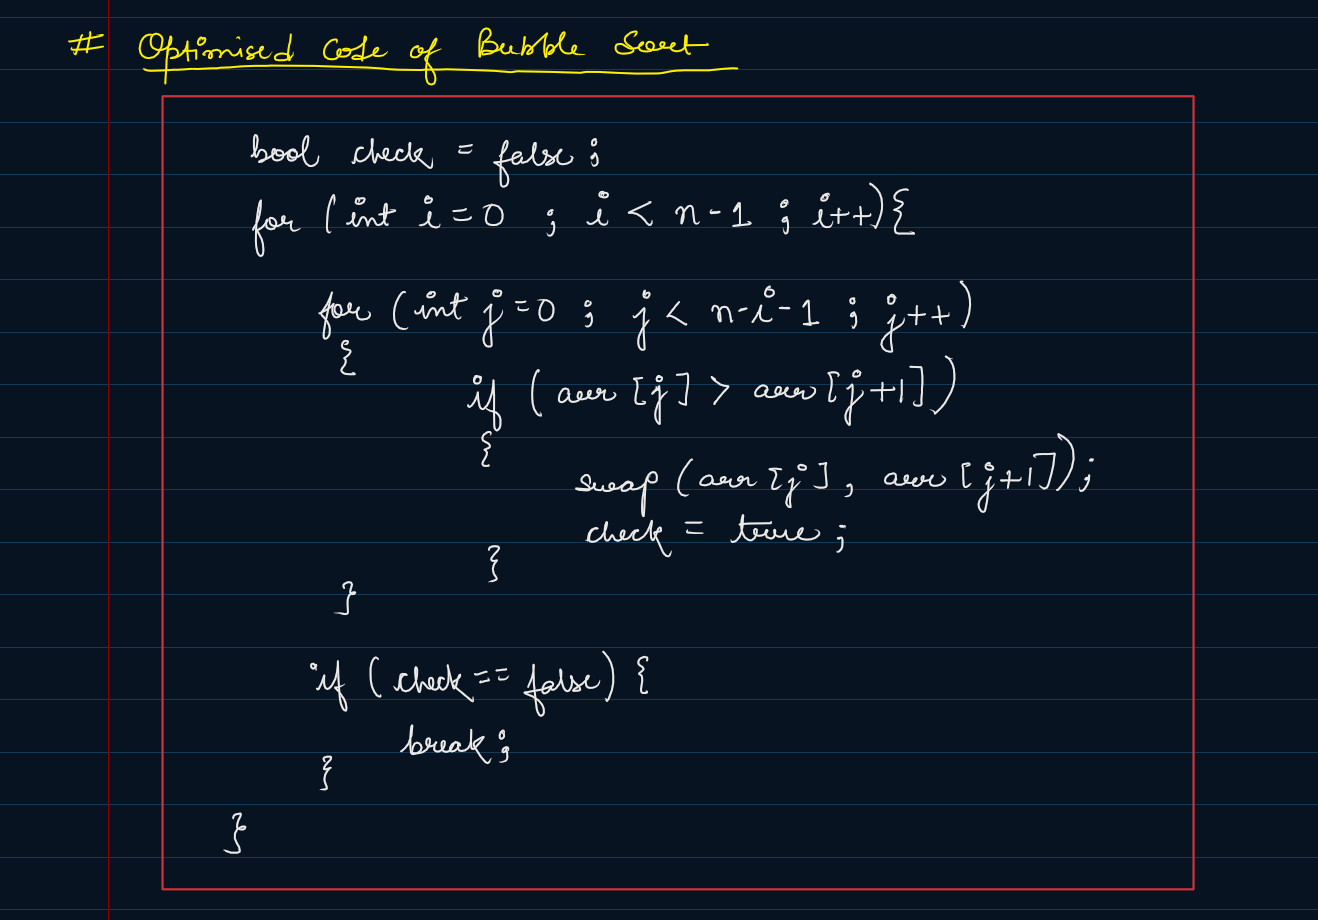 # Optimised Code of Bubble Sort
bool check = false ;
for (int i = 0 ; i < n - 1 ; i++){
for (int j = 0 ; j < n-i-1 ; j++)
{
if (arr [j] > arr [j+1])
{
swap (arr [j] , arr [j+1]);
check = true ;
}
}
if (check == false) {
break ;
}
}